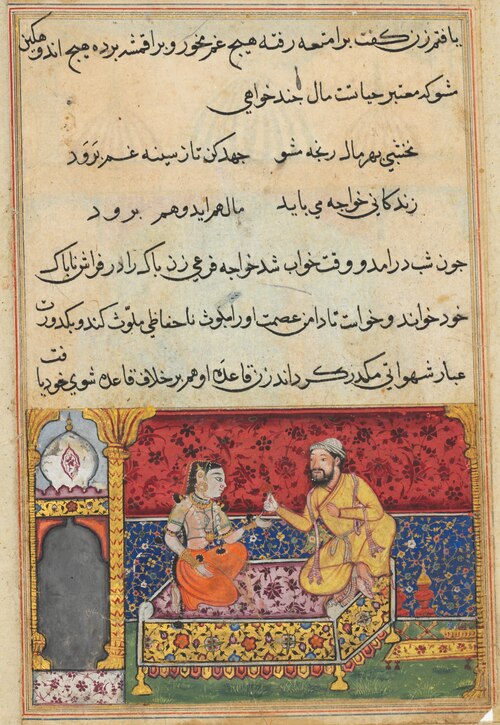 یافتم زن گفت بر امتعه رفته هیچ غم مخور و بر اقمشه برده هیچ اندوهگین
مشو که معتبر حیاتست مال چند خواهی
نخشبی بهر مال رنجه مشو جهد کن تا ز سینه غم برود
زندکانی خواجه می باید مال هم اید و هم برود
چون شب درامد و وقت خواب شد خواجه فرعی زن باک را در فراش ناباک
خود خواند و خواست تا دامن عصمت او را ملوث کند و بکدورت
غبار شهوانی مکدر کرداند زن قاعده او هم بر خلاف قاعده شوی خود یافت